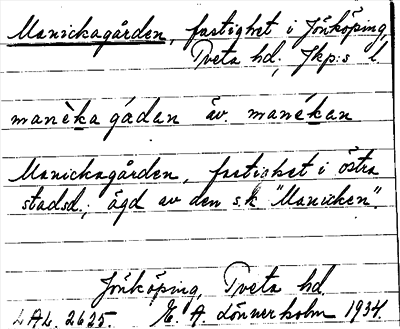 Manickagården, fastighet i Jönköping,
Tveta hd., Jkp:s l.
manèka gádan äv. manékan
Manickagården, fastighet i östra
stadsd.; ägd av den s.k "Manicken".
Jönköping, Tveta hd.
LAL. 2625. E. A. Lönnerholm 1934.